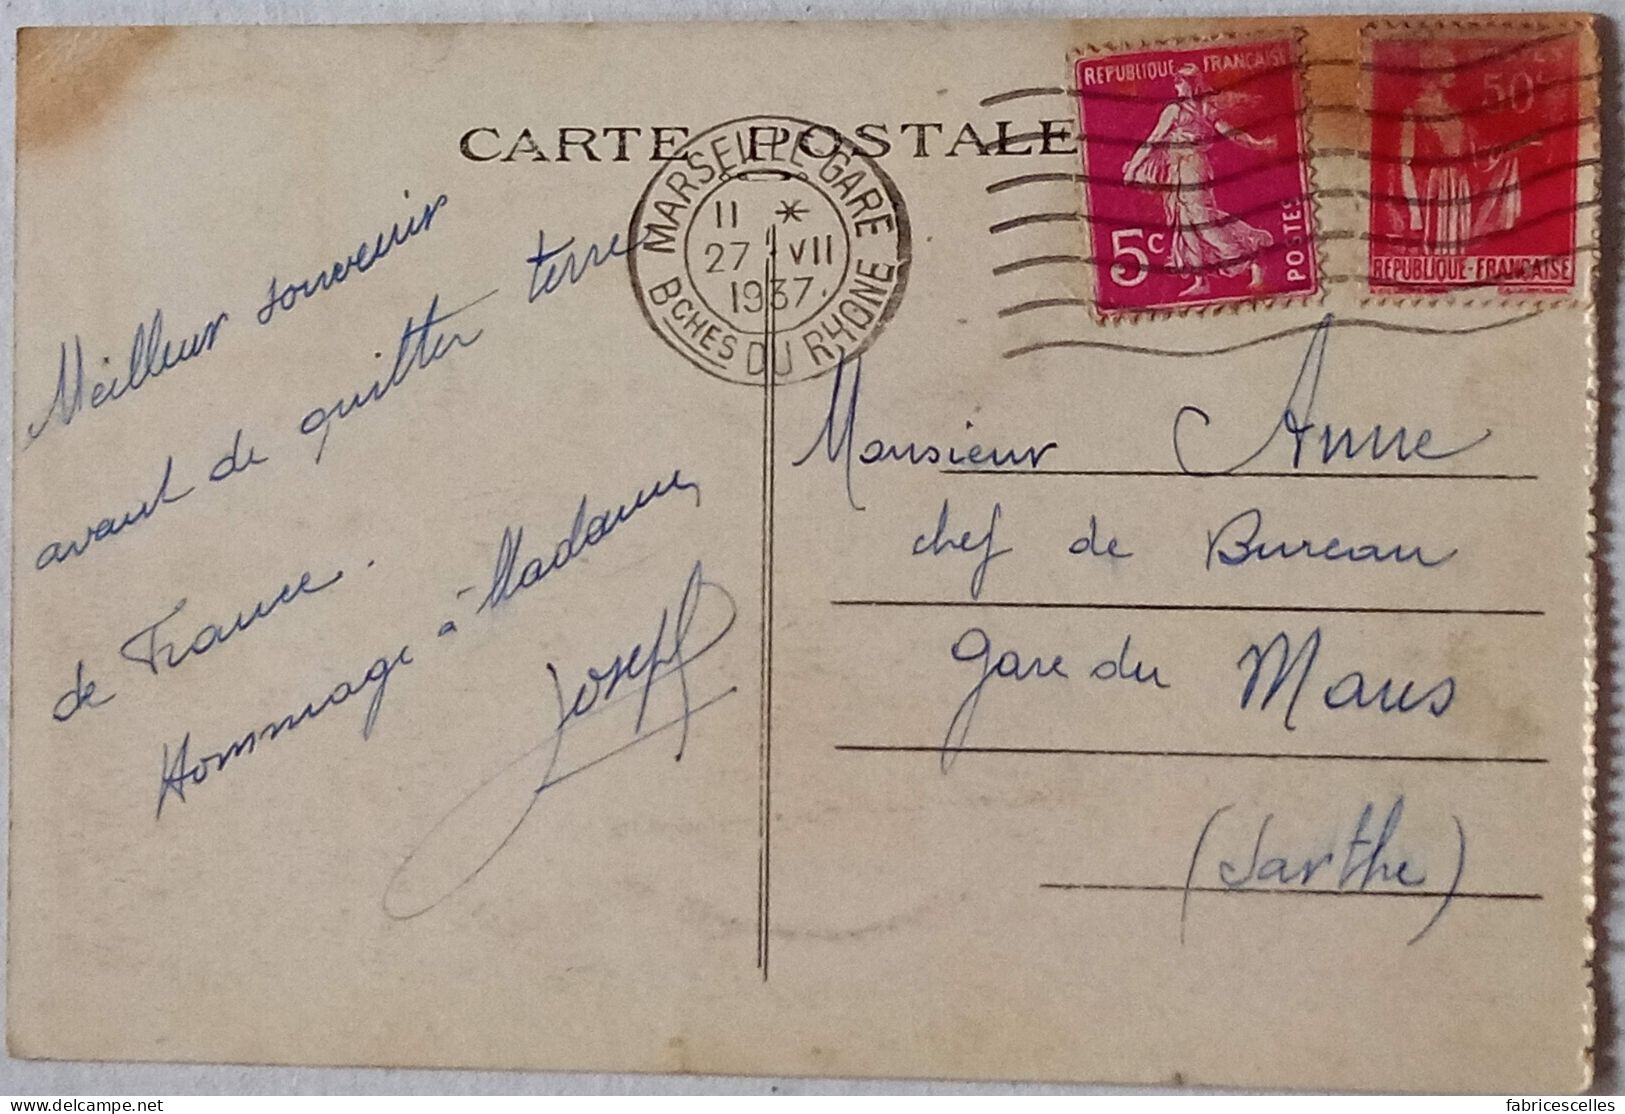 CARTE POSTALE
MARSEILLE GARE
11 *
27 VII
1937
BCHES DU RHONE
REPUBLIQUE FRANCAISE
5c
POSTES
50c
REPUBLIQUE-FRANÇAISE
Meilleur souvenir
avant de quitter terre
de France.
Hommage à Madame,
Joseph
Monsieur Anne
chef de Bureau
gare du Mans
(Sarthe)
delcampe.net
fabricescelles